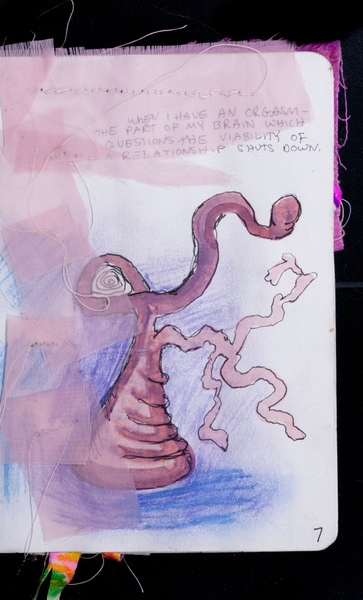 WHEN I HAVE AN ORGASM -
THE PART OF MY BRAIN WHICH
QUESTIONS THE VIABILITY OF
A RELATIONSHIP SHUTS DOWN.
7